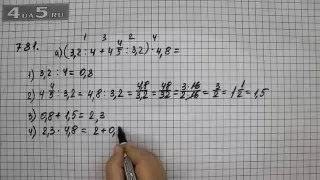 4DA5.RU
1 3 2 4
781. а) (3,2 : 4 + 4 4/5 : 3,2) · 4,8 =
1) 3,2 : 4 = 0,8
2) 4 4/5 : 3,2 = 4,8 : 3,2 = 4,8/3,2 = 48/32 = 3·16/2·16 = 3/2 = 1 1/2 = 1,5
3) 0,8 + 1,5 = 2,3
4) 2,3 · 4,8 = 2 + 0,